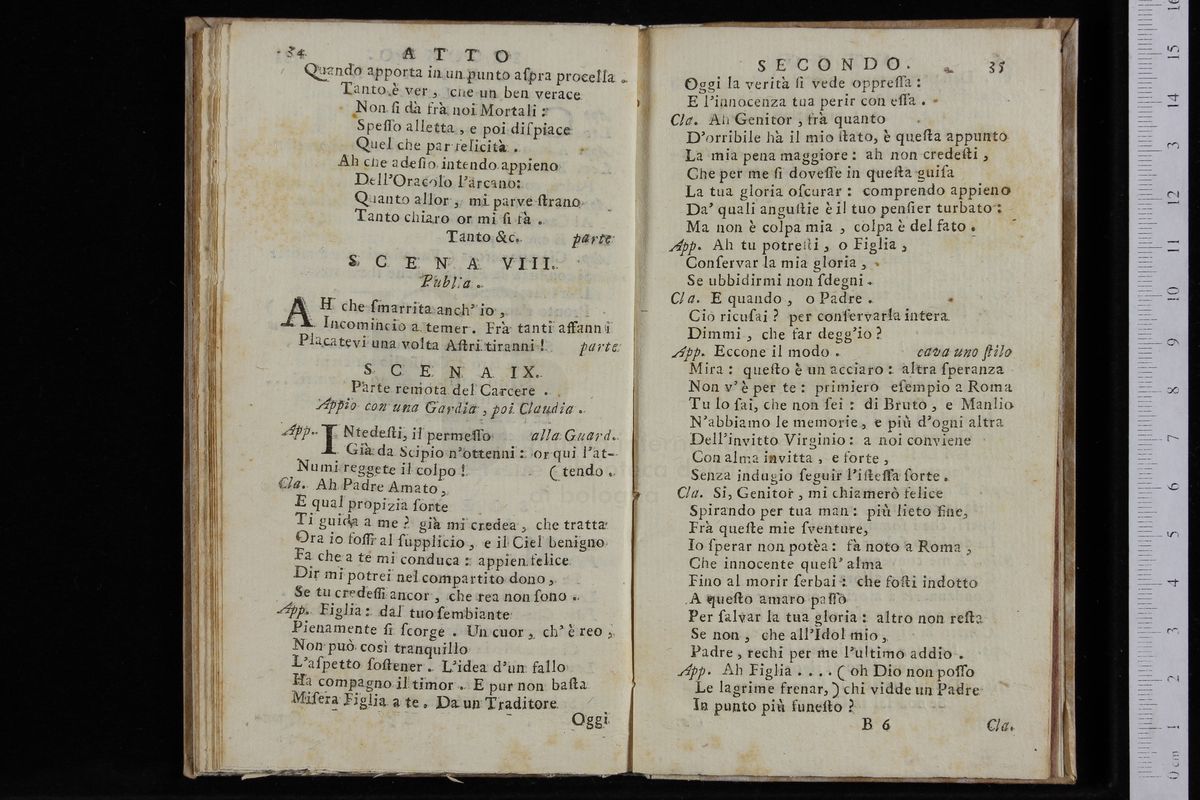 34 ATTO
Quando apporta in un punto aſpra procella.
Tanto è ver, che un ben verace
Non ſi dà frà noi Mortali:
Speſſo alletta, e poi diſpiace
Quel che par felicità.
Ah che adeſſo intendo appieno
Dell'Oracolo l'arcano:
Quanto allor, mi parve ſtrano
Tanto chiaro or mi ſi fà.
Tanto &c. parte
SCENA VIII.
Publia.
AH che ſmarrita anch' io,
Incomincio a temer. Frà tanti affanni
Placatevi una volta Aſtri tiranni! parte.
SCENA IX.
Parte remota del Carcere.
Appio con una Gardia, poi Claudia.
App. INtedeſti, il permeſſo alla Guard.
Già da Scipio n'ottenni: or qui l'at-
Numi reggete il colpo! (tendo.
Cla. Ah Padre Amato,
E qual propizia ſorte
Ti guida a me? già mi credea, che tratta
Ora io foſſi al ſupplicio, e il Ciel benigno
Fa che a te mi conduca: appien felice
Dir mi potrei nel compartito dono,
Se tu credeſſi ancor, che rea non ſono.
App. Figlia: dal tuo ſembiante
Pienamente ſi ſcorge. Un cuor, ch' è reo,
Non può così tranquillo
L'aſpetto ſoſtener. L'idea d'un fallo
Ha compagno il timor. E pur non baſta
Miſera Figlia a te. Da un Traditore
Oggi
SECONDO. 35
Oggi la verità ſi vede oppreſſa:
E l'innocenza tua perir con eſſa.
Cla. Ah Genitor, frà quanto
D'orribile hà il mio ſtato, è queſta appunto
La mia pena maggiore: ah non credeſti,
Che per me ſi doveſſe in queſta guiſa
La tua gloria oſcurar: comprendo appieno
Da' quali anguſtie è il tuo penſier turbato:
Ma non è colpa mia, colpa è del fato.
App. Ah tu potreſti, o Figlia,
Conſervar la mia gloria,
Se ubbidirmi non ſdegni.
Cla. E quando, o Padre.
Ciò ricuſai? per conſervarla intera
Dimmi, che far degg'io?
App. Eccone il modo. cava uno ſtilo
Mira: queſto è un acciaro: altra ſperanza
Non v' è per te: primiero eſempio a Roma
Tu lo ſai, che non ſei: di Bruto, e Manlio
N'abbiamo le memorie, e più d'ogni altra
Dell'invitto Virginio: a noi conviene
Con alma invitta, e forte,
Senza indugio ſeguir l'iſteſſa ſorte.
Cla. Sì, Genitor, mi chiamerò felice
Spirando per tua man: più lieto fine,
Frà queſte mie ſventure,
Io ſperar non potèa: fà noto a Roma,
Che innocente queſt' alma
Fino al morir ſerbai: che foſti indotto
A queſto amaro paſſo
Per ſalvar la tua gloria: altro non reſta
Se non, che all'Idol mio,
Padre, rechi per me l'ultimo addio.
App. Ah Figlia.... (oh Dio non poſſo
Le lagrime frenar,) chi vidde un Padre
In punto più funeſto?
B 6 Cla.